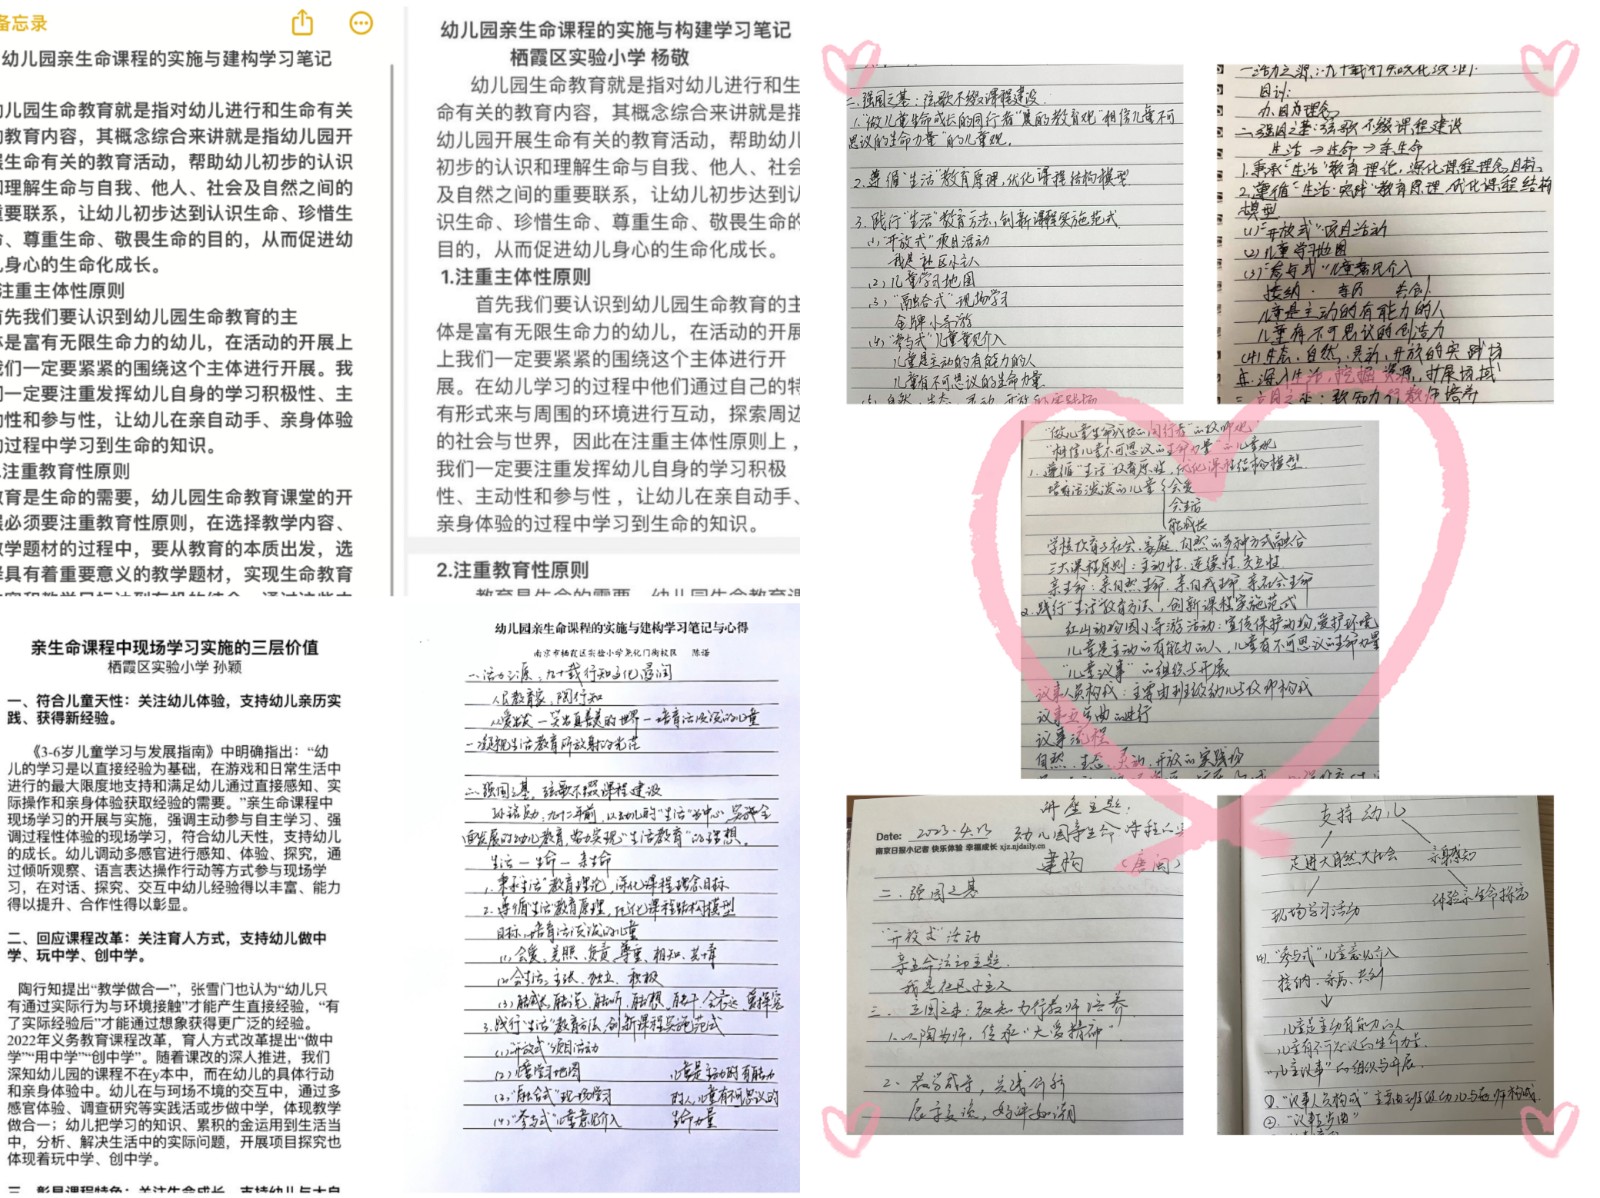 备忘录
幼儿园亲生命课程的实施与建构学习笔记
儿园生命教育就是指对幼儿进行和生命有关
教育内容，其概念综合来讲就是指幼儿园开
生命有关的教育活动，帮助幼儿初步的认识
理解生命与自我、他人、社会及自然之间的
重要联系，让幼儿初步达到认识生命、珍惜生
、尊重生命、敬畏生命的目的，从而促进幼
身心的生命化成长。
注重主体性原则
首先我们要认识到幼儿园生命教育的主
是富有无限生命力的幼儿，在活动的开展上
我们一定要紧紧的围绕这个主体进行开展。我
一定要注重发挥幼儿自身的学习积极性、主
动性和参与性，让幼儿在亲自动手、亲身体验
过程中学习到生命的知识。
.注重教育性原则
教育是生命的需要，幼儿园生命教育课堂的开
必须要注重教育性原则，在选择教学内容、
教学题材的过程中，要从教育的本质出发，选
具有着重要意义的教学题材，实现生命教育
幼儿园亲生命课程的实施与构建学习笔记
栖霞区实验小学 杨敬
幼儿园生命教育就是指对幼儿进行和生
命有关的教育内容，其概念综合来讲就是指
幼儿园开展生命有关的教育活动，帮助幼儿
初步的认识和理解生命与自我、他人、社会
及自然之间的重要联系，让幼儿初步达到认
识生命、珍惜生命、尊重生命、敬畏生命的
目的，从而促进幼儿身心的生命化成长。
1.注重主体性原则
首先我们要认识到幼儿园生命教育的主
体是富有无限生命力的幼儿，在活动的开展
上我们一定要紧紧的围绕这个主体进行开
展。在幼儿学习的过程中他们通过自己的特
有形式来与周围的环境进行互动，探索周边
的社会与世界，因此在注重主体性原则上，
我们一定要注重发挥幼儿自身的学习积极
性、主动性和参与性，让幼儿在亲自动手、
亲身体验的过程中学习到生命的知识。
2.注重教育性原则
教育是生命的需要，幼儿园生命教育课
亲生命课程中现场学习实施的三层价值
栖霞区实验小学 孙颖
一、符合儿童天性：关注幼儿体验，支持幼儿亲历实
践、获得新经验。
《3-6岁儿童学习与发展指南》中明确指出：“幼
儿的学习是以直接经验为基础，在游戏和日常生活中
进行的最大限度地支持和满足幼儿通过直接感知、实
际操作和亲身体验获取经验的需要。”亲生命课程中
现场学习的开展与实施，强调主动参与自主学习、强
调过程性体验的现场学习，符合幼儿天性，支持幼儿
的成长。幼儿调动多感官进行感知、体验、探究，通
过倾听观察、语言表达操作行动等方式参与现场学
习，在对话、探究、交互中幼儿经验得以丰富、能力
得以提升、合作性得以彰显。
二、回应课程改革：关注育人方式，支持幼儿做中
学、玩中学、创中学。
陶行知提出“教学做合一”，张雪门也认为“幼儿只
有通过实际行为与环境接触”才能产生直接经验，“有
了实际经验后”才能通过想象获得更广泛的经验。
2022年义务教育课程改革，育人方式改革提出“做中
学”“用中学”“创中学”。随着课改的深人推进，我们
深知幼儿园的课程不在y本中，而在幼儿的具体行动
和亲身体验中。幼儿在与珂场不境的交互中，通过多
感官体验、调查研究等实践活或步做中学，体现教学
做合一；幼儿把学习的知识、累积的金运用到生活当
中，分析、解决生活中的实际问题，开展项目探究也
体现着玩中学、创中学。
三、彰显课程特色：关注生命成长，支持幼儿与大自
幼儿园亲生命课程的实施与建构学习笔记与心得
南京市栖霞区实验小学尧化门街校区 陈诺
人民教育家，陶行知
二、强园之基，弦歌不辍课程建设
生活—生命—亲生命
1.秉承“生活”教育理论，深化课程理念目标
2.遵循生活教育原理，优化课程结构模型
3.践行“生活”教育方法，创新课程实施范式
(1)“开放式”项目活动
(2)儿童学习地图
(3)“融合式”现场学习
(4)“参与式”儿童意见介入
儿童是主动的有能力
的人，儿童有不可思议的
生命力量
二、强园之基：弦歌不辍课程建设.
1.“做儿童生命成长的同行者”的教育观“相信儿童不可
思议的生命力量”的儿童观.
2.遵循“生活”教育原理，优化课程结构模型
3.践行“生活”教育方法、创新课程实施范式.
(1)“开放式”项目活动
我是社区小主人
(2)儿童学习地图
(3)“融合式”现场学习
金牌小导游
(4)“参与式”儿童意见介入
儿童是主动的有能力的人
儿童有不可思议的生命力量
办园理念
二、强园之基：弦歌不辍课程建设
生活→生命→亲生命
1.秉承“生活”教育理论，深化课程理念目标.
2.遵循“生活·实践”教育原理，优化课程结构
模型
(1)“开放式”项目活动
(2)儿童学习地图
(3)“参与式”儿童意见介入
接纳 亲历 共创
儿童是主动的有能力的人
儿童有不可思议的创造力
(4)生态、自然、灵动、开放的实践场
“做儿童生命成长的同行者”的教师观
“相信儿童不可思议的生命力量”的儿童观
1.遵循“生活”教育原理，优化课程结构模型.
培育活泼泼的儿童
会爱
会生活
能成长
学校教育与社会、家庭、自然的多种方式融合
三大课程原则：主动性、连续性、交互性
亲生命、亲自然生命、亲自我生命、亲社会生命
2.践行“生活”教育方法，创新课程实施范式
红山动物园小导游活动：宣传保护动物，爱护环境
儿童是主动的有能力的人，儿童有不可思议的生命力量
“儿童议事”的组织与开展
议事人员构成：主要由班级幼儿与教师构成
议事流程
自然、生态、灵动、开放的实践场
讲座主题：
Date: 2023.4.13 幼儿园亲生命课程的实
南京日报小记者 快乐体验 幸福成长 xjz.njdaily.cn
建构 （唐闽）
二、强园之基
“开放式”活动
亲生命活动主题.
我是社区小主人
三、立园之本：致知力行教师培养
1.以陶为师，传承“大爱精神”
支持幼儿
走进大自然大社会
亲身感知
现场学习活动
体验亲生命探究
(4).“参与式”儿童意见介入
接纳、亲历、共创
儿童是主动有能力的人
儿童有不可思议的生命力量.
“儿童议事”的组织与开展.
①.“议事人员构成”主要由班级幼儿与教师构成.